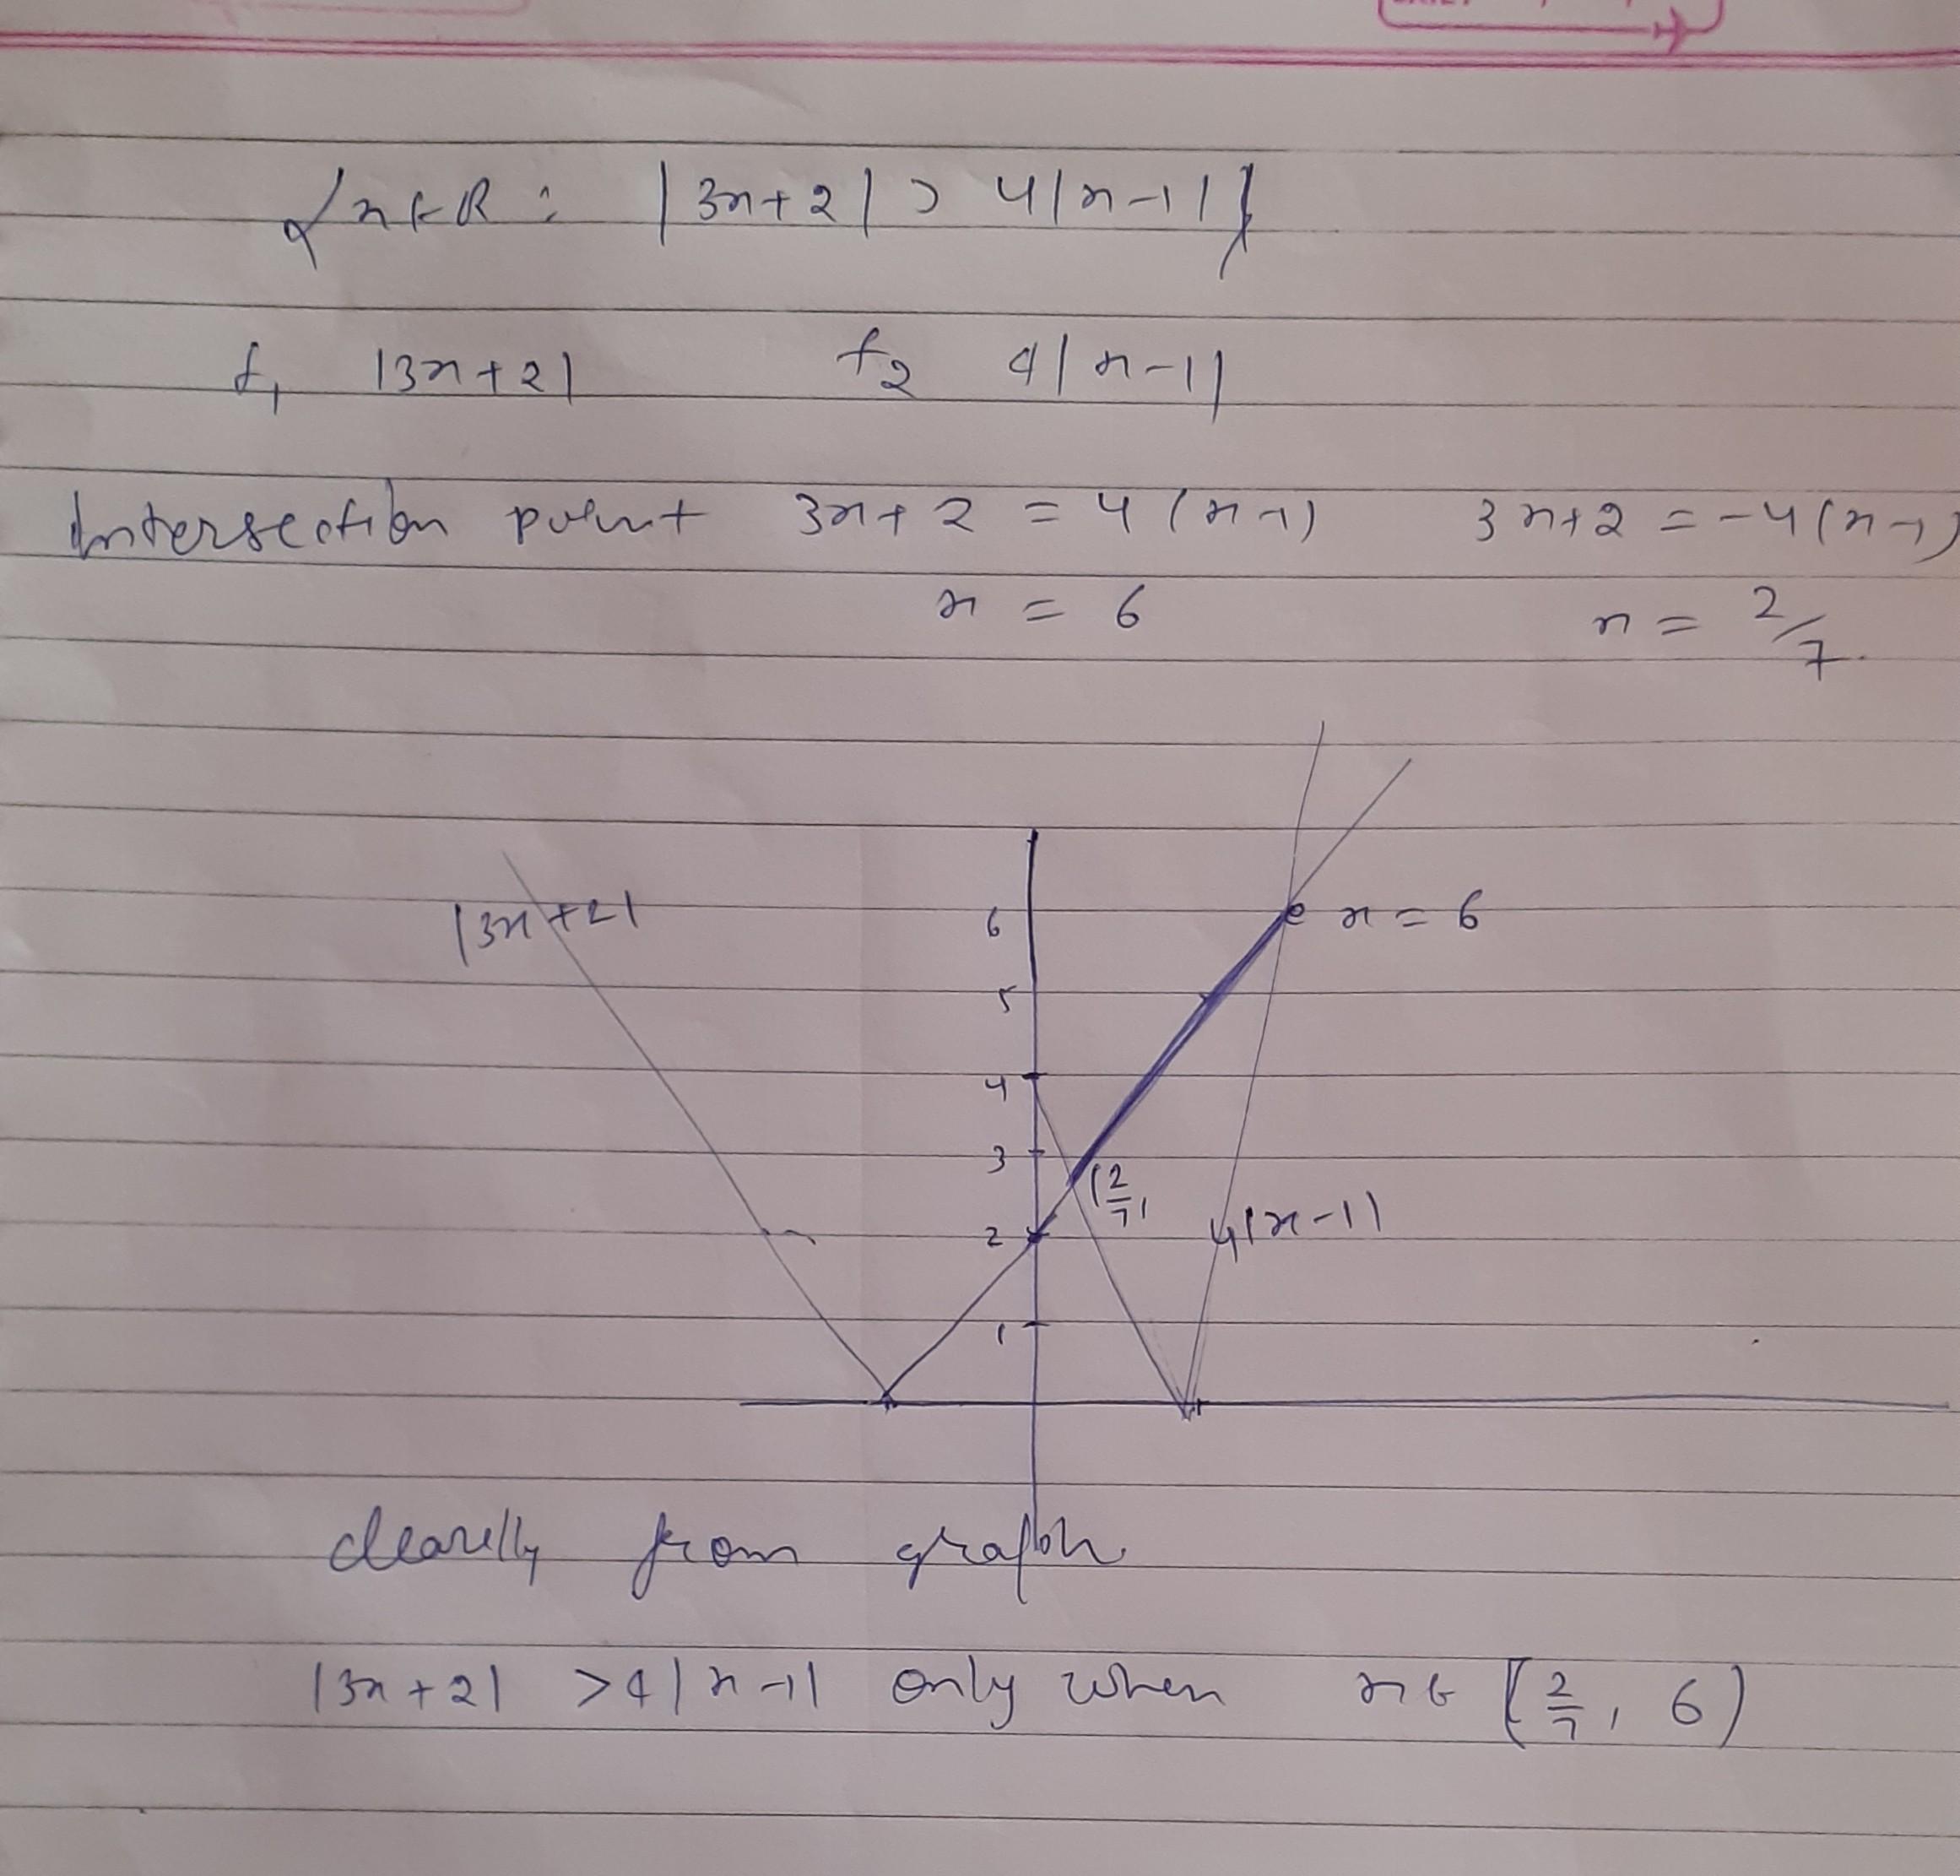 {x ∈ R : |3x+2| > 4|x-1|}
f₁ |3x+2| f₂ 4|x-1|
Intersection point 3x+2 = 4(x-1) 3x+2 = -4(x-1)
x = 6 x = 2/7
|3x+2|
6 x = 6
5
4
3
(2/7,
2 4|x-1|
1
clearlly from graph
|3x+2| > 4|x-1| only when x ∈ (2/7, 6)